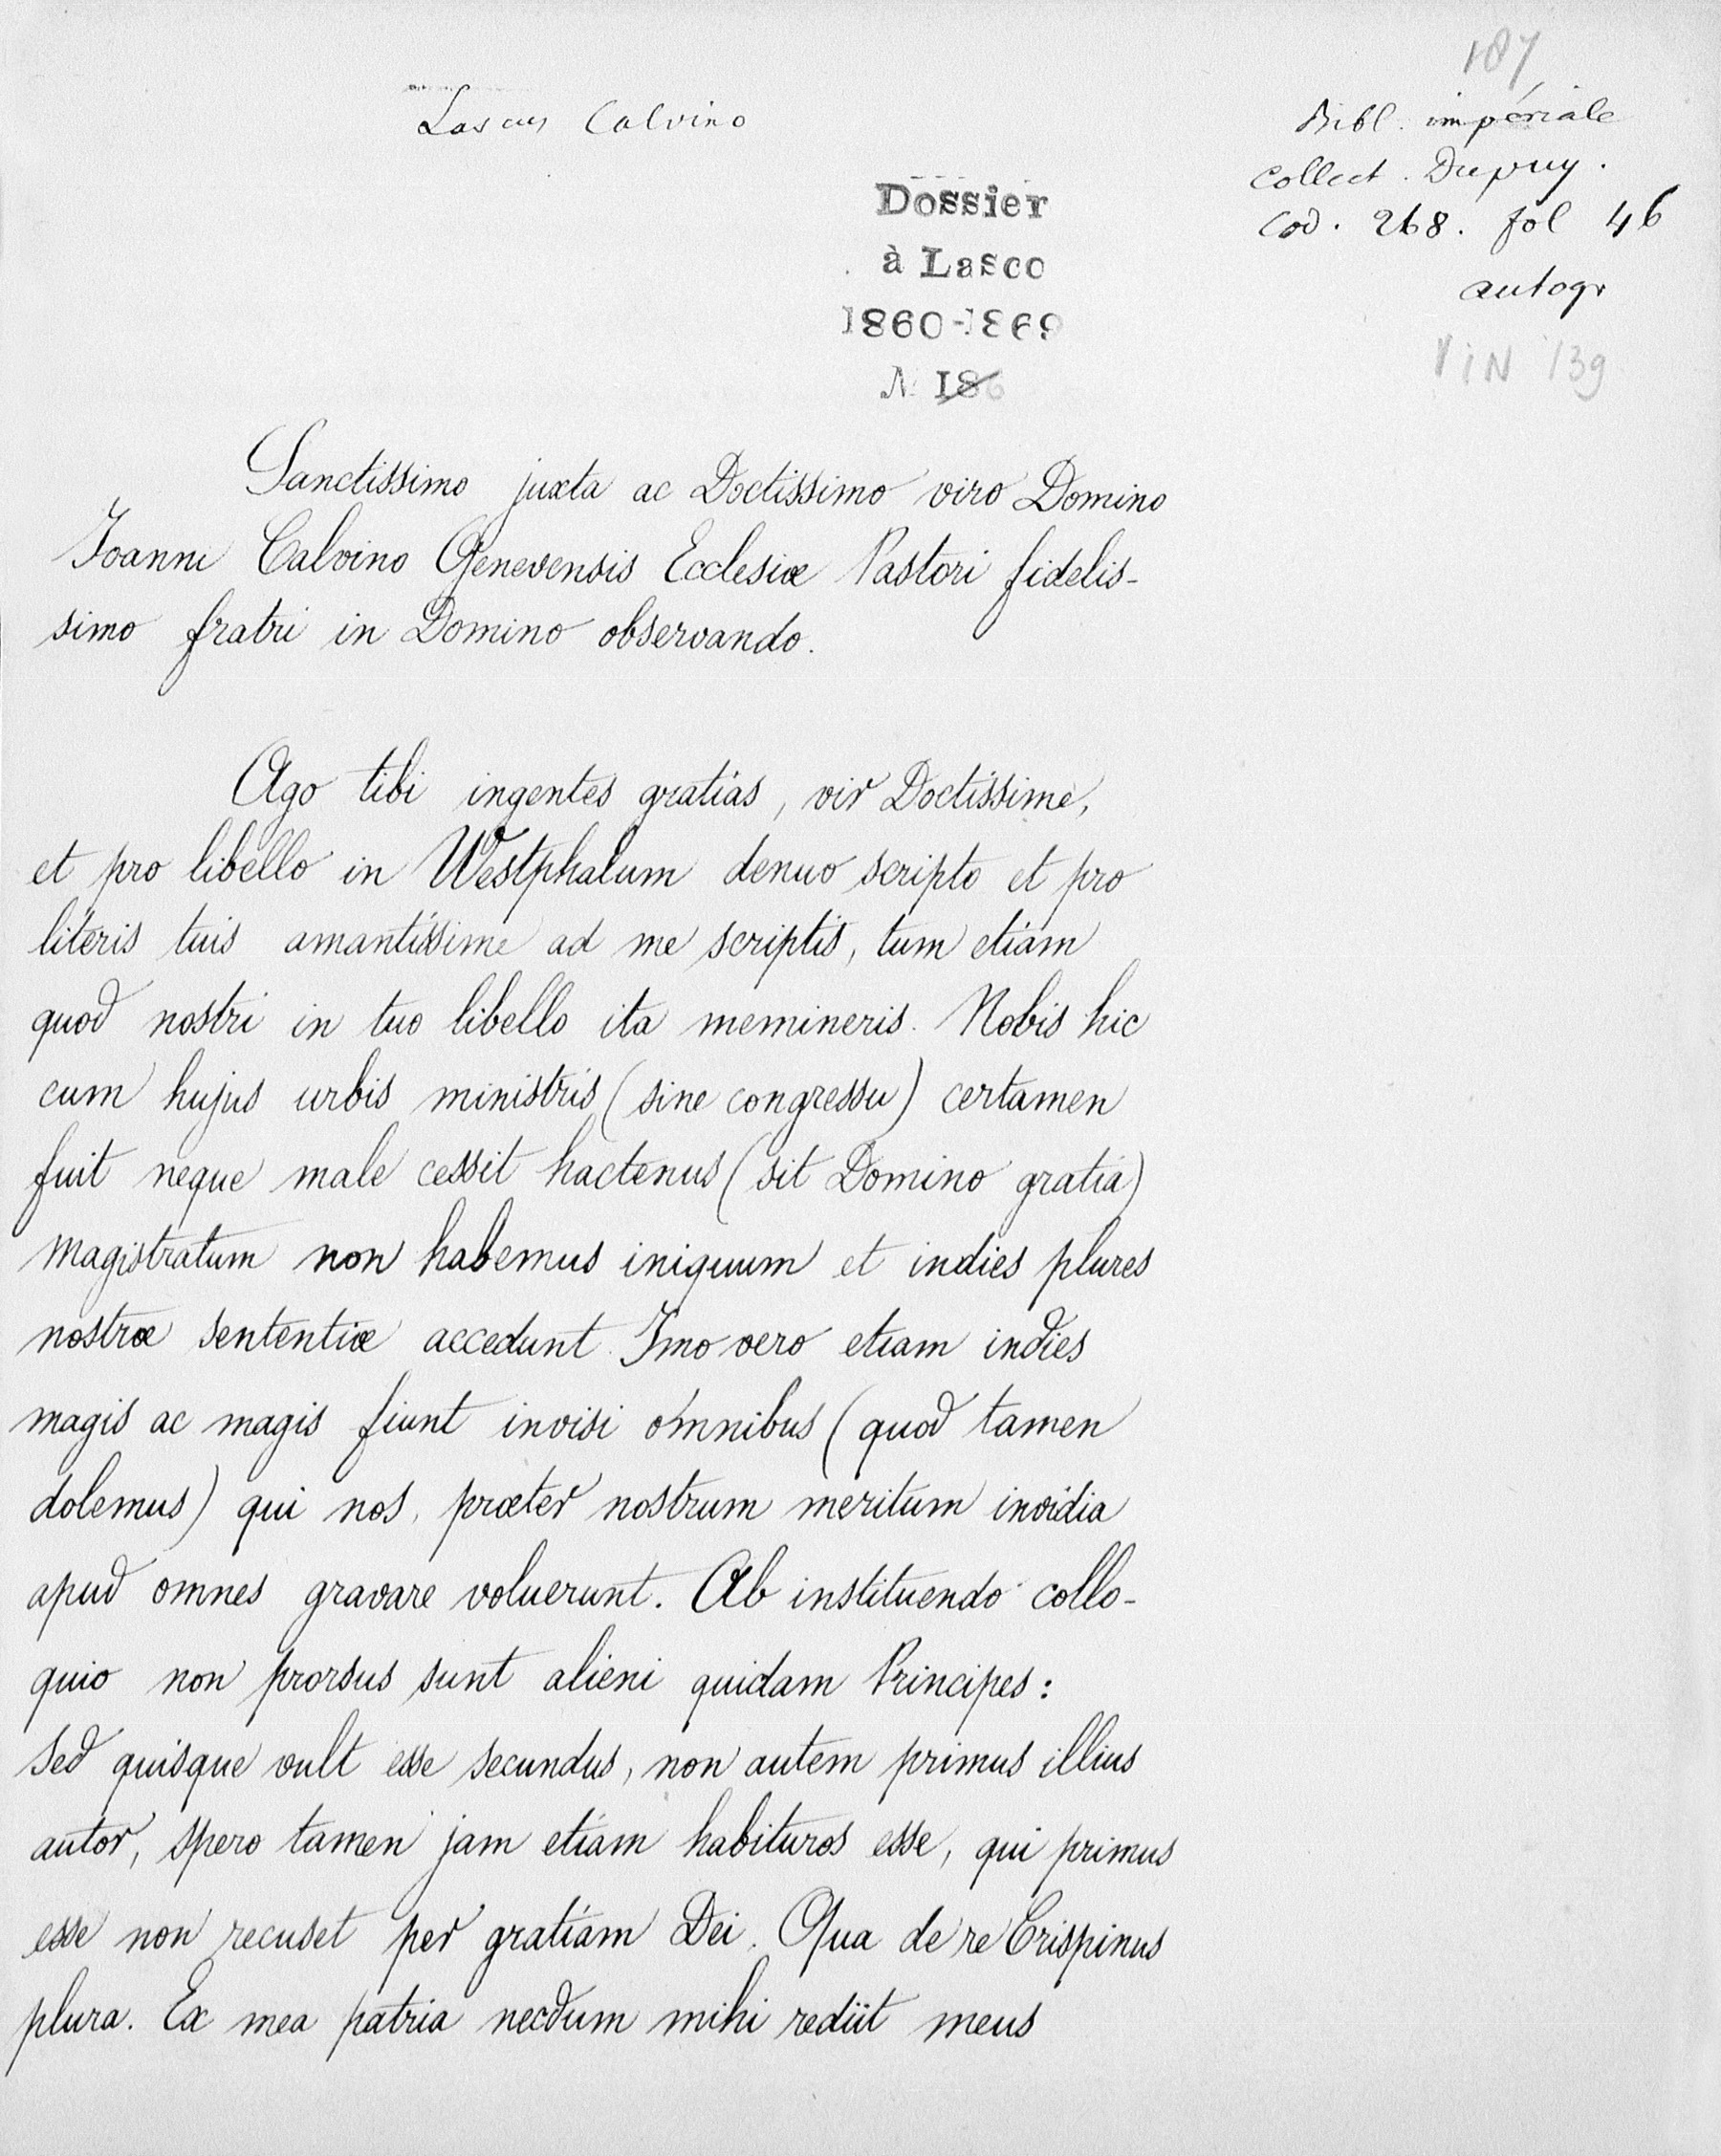 187
Lascus Calvino
Bibl. impériale
Collect. Dupuy.
Cod. 268. fol 46
autogr
Dossier
à Lasco
1860-1869
N 186
VIN 139
Sanctissimo juxta ac Doctissimo viro Domino
Joanni Calvino Genevensis Ecclesiæ Pastori fidelis-
simo fratri in Domino observando.
Ago tibi ingentes gratias, vir Doctissime,
et pro libello in Westphalum denuo scripto et pro
literis tuis amantissime ad me scriptis, tum etiam
quod nostri in tuo libello ita memineris. Nobis hic
cum hujus urbis ministris (sine congressu) certamen
fuit neque male cessit hactenus (sit Domino gratia)
Magistratum non habemus iniquum et indies plures
nostræ sententiæ accedunt. Imo vero etiam indies
magis ac magis fiunt invisi omnibus (quod tamen
dolemus) qui nos, præter nostrum meritum invidia
apud omnes gravare voluerunt. Ab instituendo collo-
quio non prorsus sunt alieni quidam Principes:
Sed quisque vult esse secundus, non autem primus illius
autor, spero tamen jam etiam habituros esse, qui primus
esse non recuset per gratiam Dei. Qua de re Crispinus
plura. Ex mea patria necdum mihi rediit meus